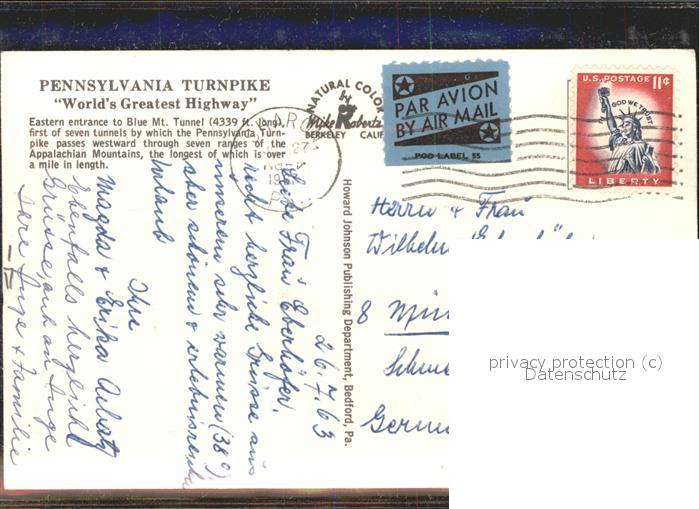 PENNSYLVANIA TURNPIKE
"World's Greatest Highway"
Eastern entrance to Blue Mt. Tunnel (4339 ft. long),
first of seven tunnels by which the Pennsylvania Turn-
pike passes westward through seven ranges of the
Appalachian Mountains, the longest of which is over
a mile in length.
NATURAL COLOR
by
Mike Roberts
BERKELEY CALIF
PAR AVION
BY AIR MAIL
POD LABEL 55
U.S. POSTAGE 11¢
IN GOD WE TRUST
LIBERTY
Howard Johnson Publishing Department, Bedford, Pa.
26.7.63
Liebe Frau Eberhöfer,
recht herzliche Grüsse aus
unserem sehr warmen (38°)
aber schönen & erlebnisreichen
Urlaub
Ihre
Magda & Erika
Ebenfalls herzliche
Grüsse, auch an Inge
Ihre Inge & Familie
Herrn & Frau
Wilhelm
8 Mün
Schwe
Germ
privacy protection (c)
Datenschutz